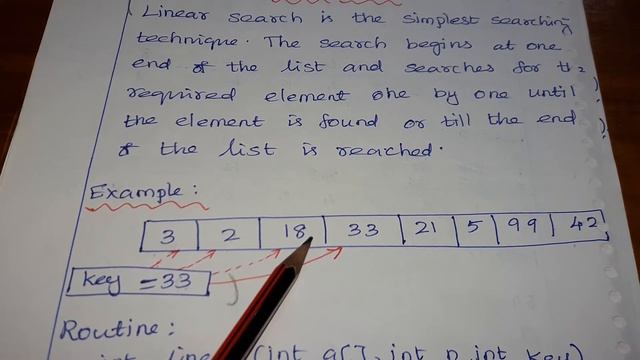 Linear search is the simplest searching
technique. The search begins at one
end of the list and searches for the
required element one by one until
the element is found or till the end
of the list is reached.
Example:
3 2 18 33 21 5 99 42
key = 33
Routine:
(int a[], int n, int key)